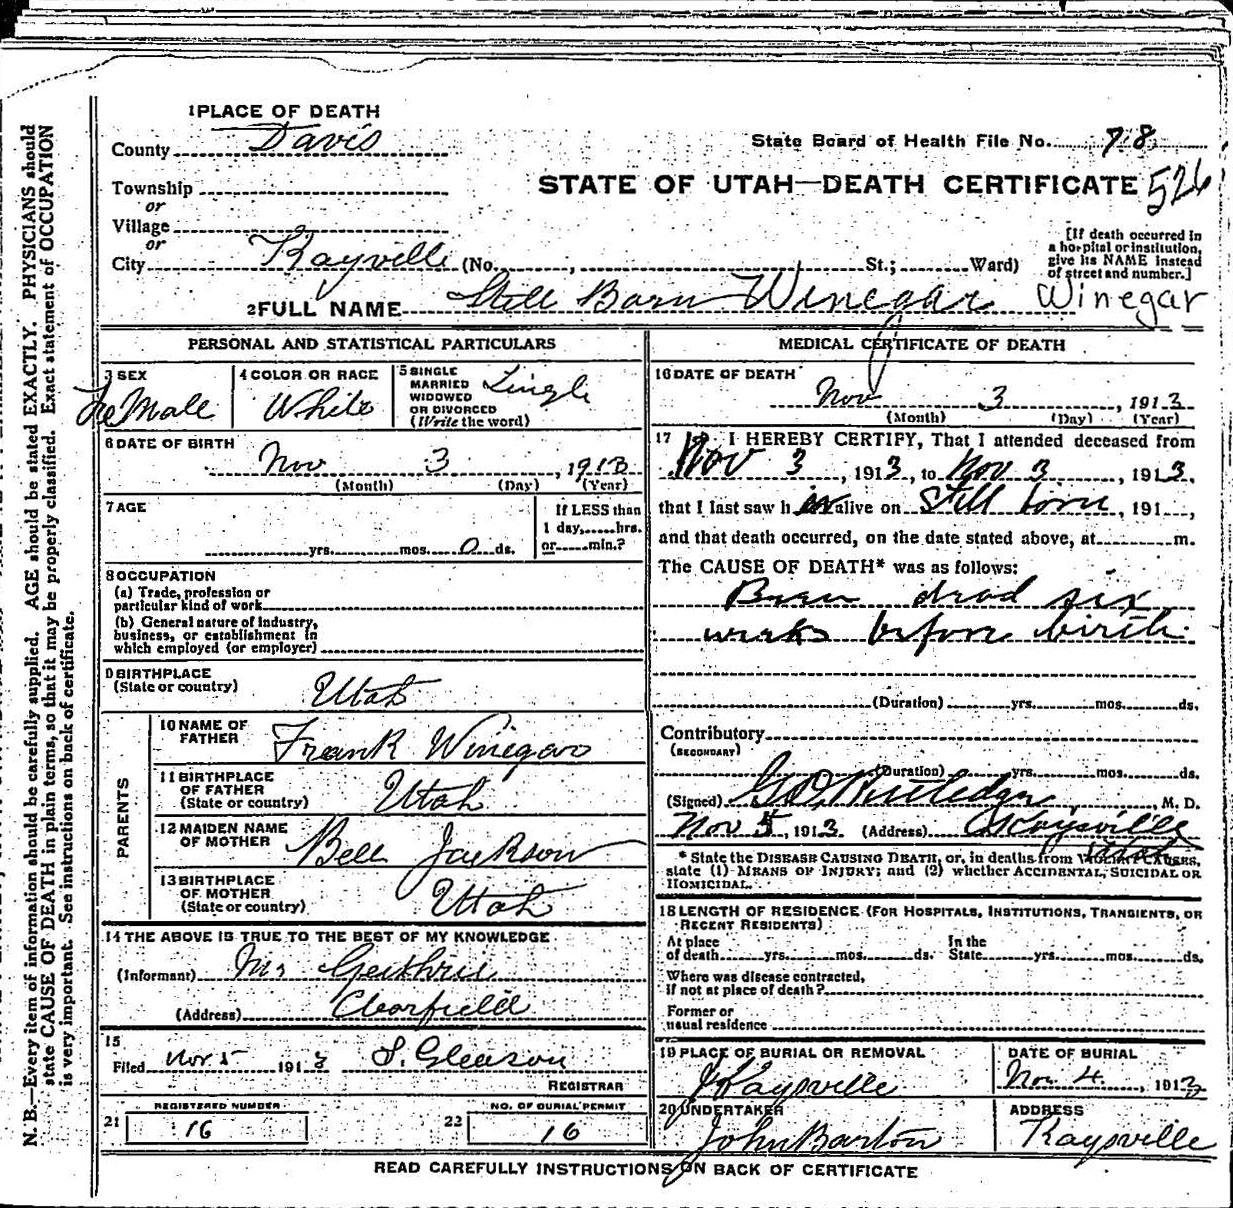 1 PLACE OF DEATH
County Davis
State Board of Health File No. 78
STATE OF UTAH—DEATH CERTIFICATE 526
Township
or
Village
or
City Kayville (No. , St.; Ward)
[If death occurred in
a hospital or institution,
give its NAME instead
of street and number.]
2 FULL NAME Still Born Winegar Winegar
PERSONAL AND STATISTICAL PARTICULARS
3 SEX
FeMale
4 COLOR OR RACE
White
5 SINGLE
MARRIED
WIDOWED
OR DIVORCED
(Write the word)
Single
6 DATE OF BIRTH
Nov 3, 1913
(Month) (Day) (Year)
7 AGE
yrs. mos. 0 ds.
If LESS than
1 day, hrs.
or min.?
8 OCCUPATION
(a) Trade, profession or
particular kind of work
(b) General nature of industry,
business, or establishment in
which employed (or employer)
9 BIRTHPLACE
(State or country)
Utah
PARENTS
10 NAME OF
FATHER
Frank Winegar
11 BIRTHPLACE
OF FATHER
(State or country)
Utah
12 MAIDEN NAME
OF MOTHER
Bell Jackson
13 BIRTHPLACE
OF MOTHER
(State or country)
Utah
14 THE ABOVE IS TRUE TO THE BEST OF MY KNOWLEDGE
(Informant) Mrs Guthrie
(Address) Clearfield
15
Filed Nov 5 1913 S. Gleason
REGISTRAR
21 REGISTERED NUMBER
16
22 NO. OF BURIAL PERMIT
16
MEDICAL CERTIFICATE OF DEATH
16 DATE OF DEATH
Nov 3, 1913
(Month) (Day) (Year)
17 I HEREBY CERTIFY, That I attended deceased from
Nov 3, 1913, to Nov 3, 1913.
that I last saw h alive on Still born, 191 ,
and that death occurred, on the date stated above, at m.
The CAUSE OF DEATH* was as follows:
Been dead six
weeks before birth
(Duration) yrs. mos. ds.
Contributory
(SECONDARY)
(Duration) yrs. mos. ds.
(Signed) G D Rutledge, M. D.
Nov 5, 1913 (Address) Kaysville
Utah
* State the DISEASE CAUSING DEATH, or, in deaths from VIOLENT CAUSES,
state (1) MEANS OF INJURY; and (2) whether ACCIDENTAL, SUICIDAL OR
HOMICIDAL.
18 LENGTH OF RESIDENCE (FOR HOSPITALS, INSTITUTIONS, TRANSIENTS, OR
RECENT RESIDENTS)
At place
of death yrs. mos. ds.
In the
State yrs. mos. ds.
Where was disease contracted,
If not at place of death?
Former or
usual residence
19 PLACE OF BURIAL OR REMOVAL
Kaysville
DATE OF BURIAL
Nov 4, 1913
20 UNDERTAKER
John Barton
ADDRESS
Kaysville
READ CAREFULLY INSTRUCTIONS ON BACK OF CERTIFICATE
N. B.—Every item of information should be carefully supplied. AGE should be stated EXACTLY. PHYSICIANS should
state CAUSE OF DEATH in plain terms, so that it may be properly classified. Exact statement of OCCUPATION
is very important. See instructions on back of certificate.